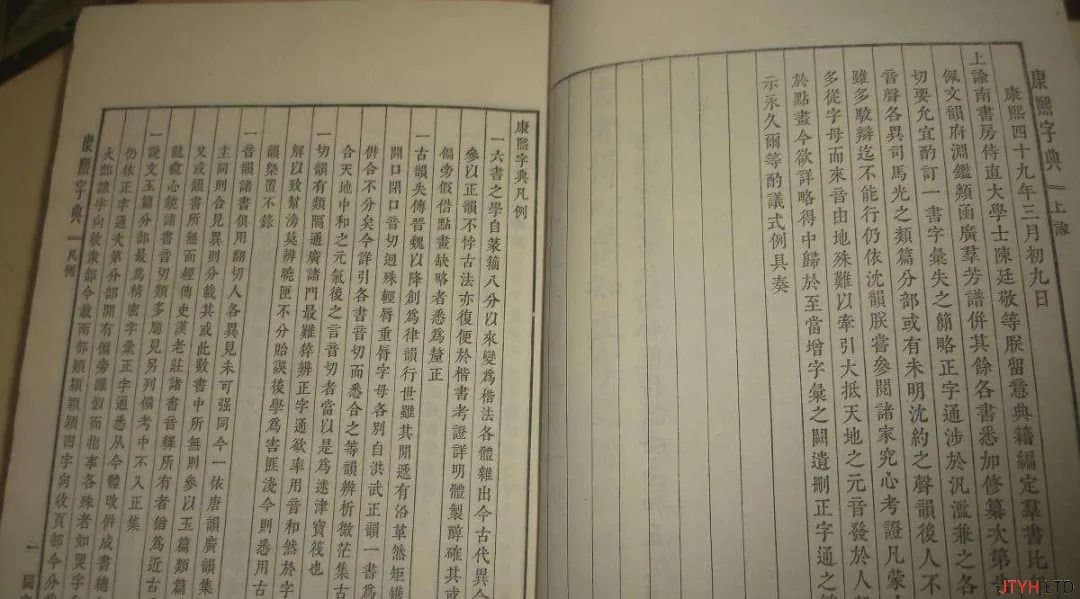 康熙字典 上諭
康熙四十九年三月初九日
上諭南書房侍直大學士陳廷敬等朕留意典籍編定羣書比
佩文韻府淵鑑類函廣羣芳譜併其餘各書悉加修纂次第
切要允宜酌訂一書字彙失之簡略正字通涉於汎濫兼之各
音聲各異司馬光之類篇分部或有未明沈約之聲韻後人不
雖多駁辯迄不能行仍依沈韻朕嘗參閱諸家究心考證凡蒙
多從字母而來音由地殊難以牽引大抵天地之元音發於人
於點畫今欲詳略得中歸於至當增字彙之闕遺刪正字通之
示永久爾等酌議式例具奏
康熙字典凡例
一六書之學自篆籀八分以來變爲楷法各體雜出今古代異今
參以正韻不悖古法亦復便於楷書考證詳明體製醇確其或
偏旁假借點畫缺略者悉爲釐正
一古韻失傳晉魏以降創爲律韻行世雖其閒遞有沿革然矩
開口閉口音切迥殊輕脣重脣字母各別自洪武正韻一書爲
併合不分矣今詳引各書音切而悉合之等韻辨析微茫集古
合天地中和之元氣後之言音切者當以是爲迷津寶筏也
一切韻有類隔通廣諸門最難猝辨正字通欲率用音和然於字
解以致幫滂莫辨曉匣不分貽誤後學爲害匪淺今則悉用古
韻槩置不錄
一音韻諸書俱用翻切人各異見未可强同今一依唐韻廣韻集
主同則合見異則分載其或此數書中所無則參以玉篇類篇
又或韻書所無而經傳史漢老莊諸書音釋所有者猶爲近古
龍龕心鏡諸書音切類多臆見另列備考中不入正集
一說文玉篇分部最爲精密字彙正字通悉从今體改併成書總
仍依正字通次第分部閒有偏旁雖似而指事各殊者如煛字
火部隸字向收隶部今載雨部熲潁穎潁四字向收頁部今分
康熙字典 凡例
一
JTYH LTD